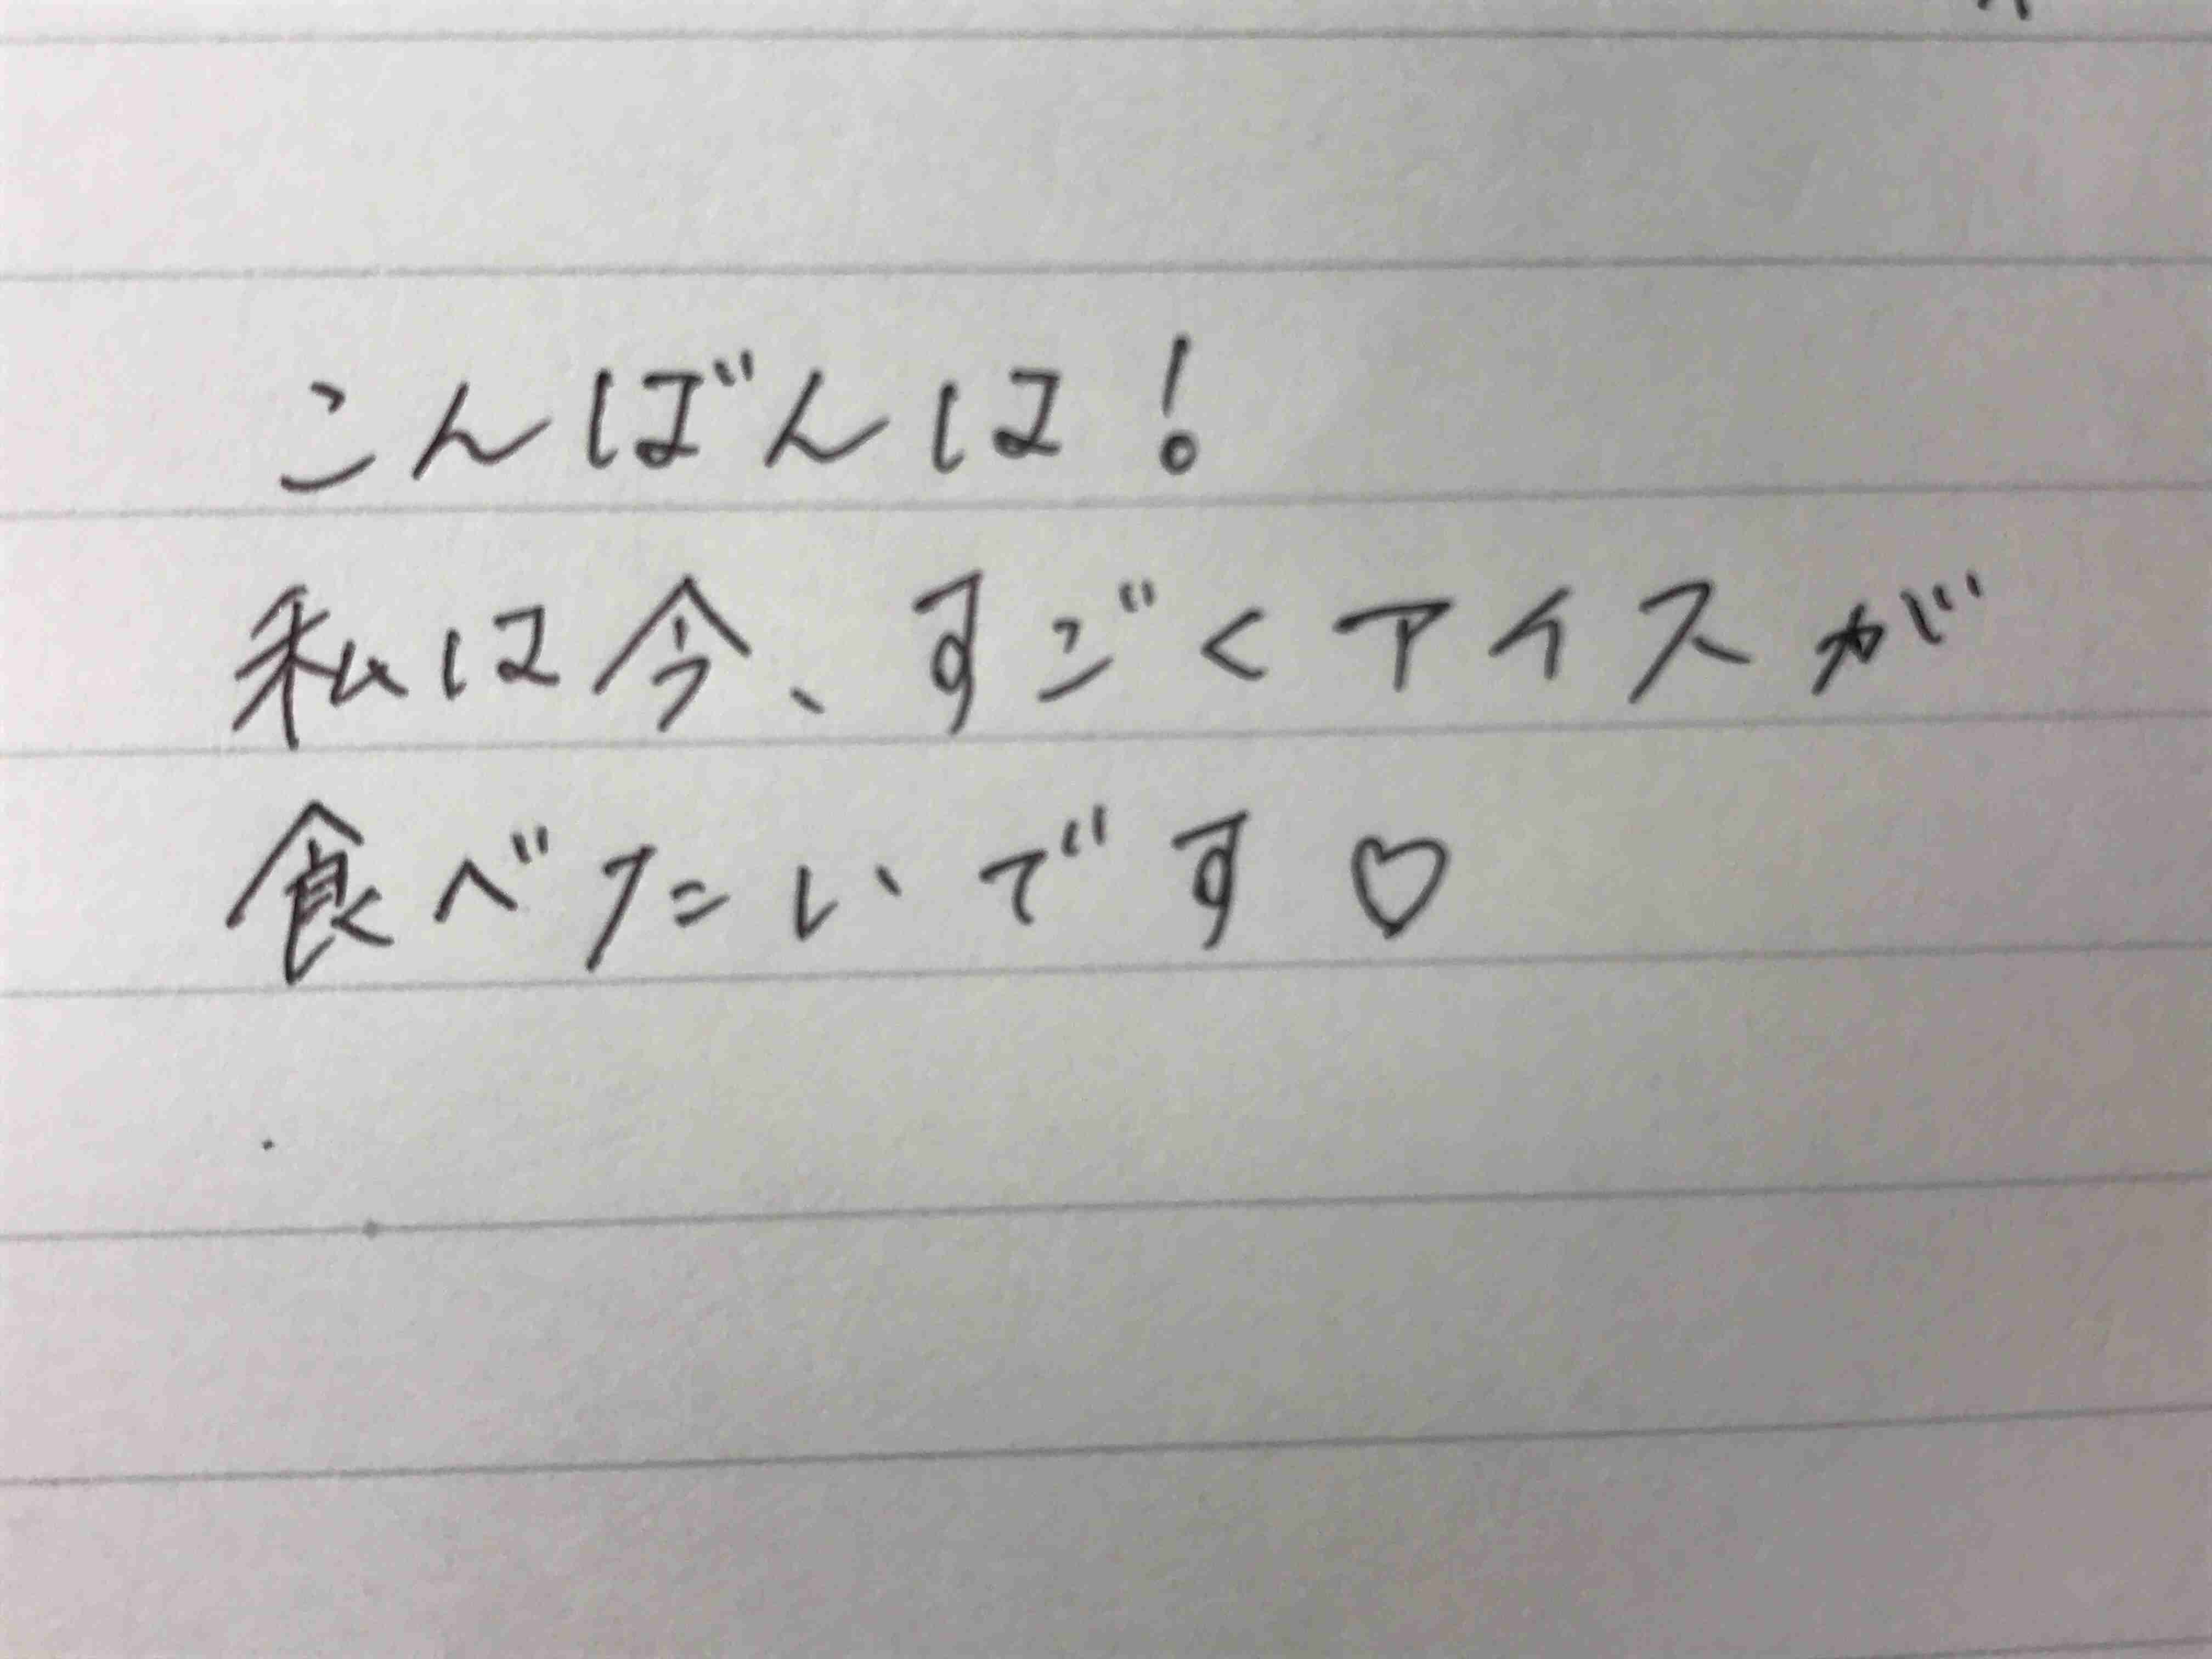 こんばんは!
私は今、すごくアイスが
食べたいです♡